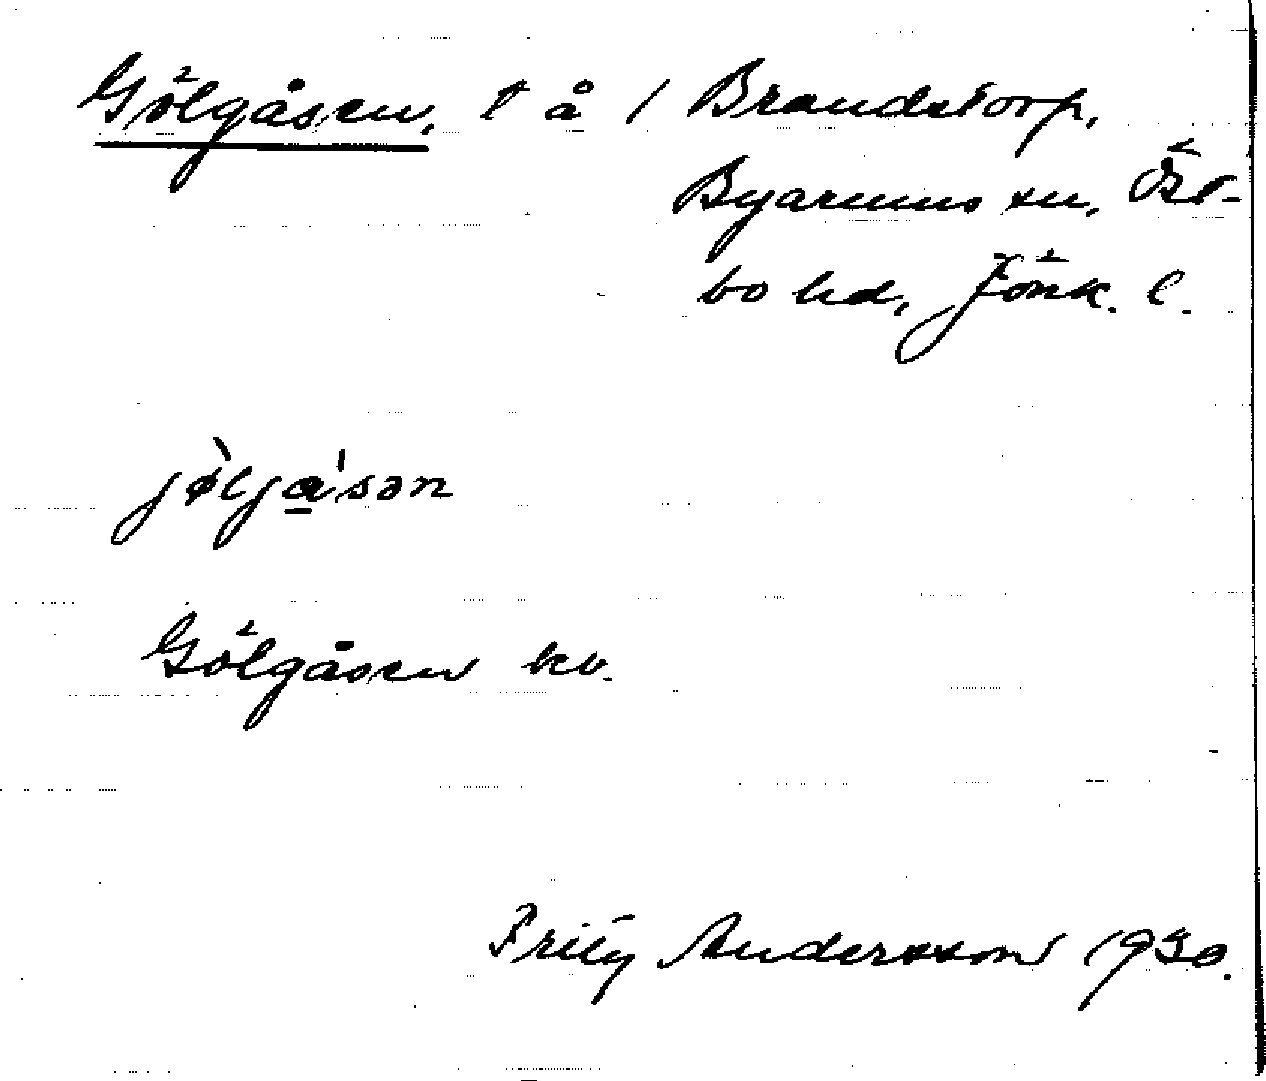 Gölgåsen, t å 1 Brandstorp,
Byarums sn, Öst-
bo hd, Jönk. l.
jø̀ljά̲sən
Gölgåsen kv.
Fritz Andersson 1930.